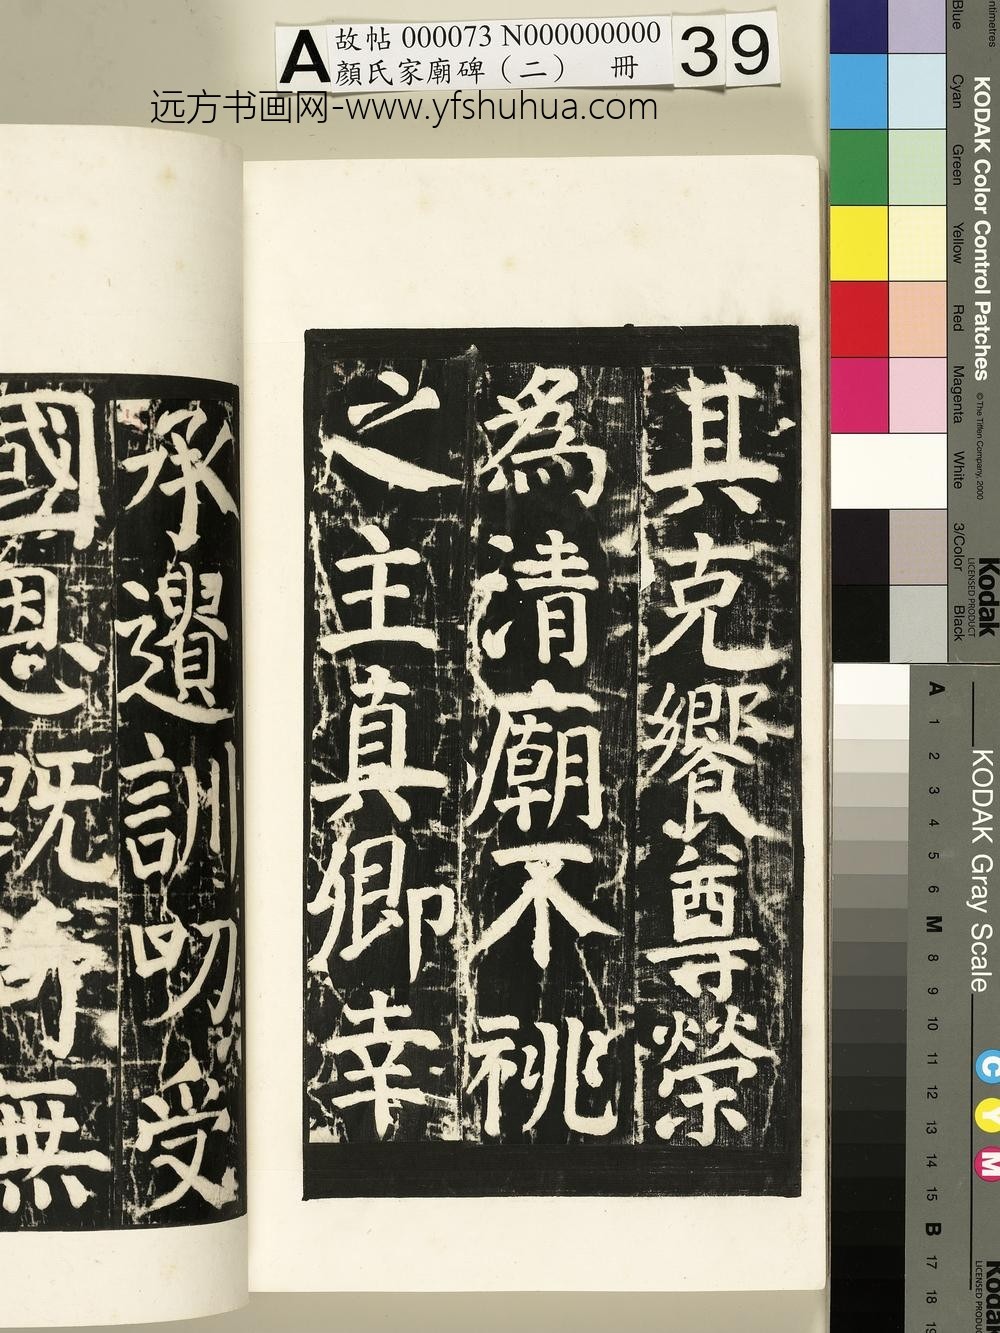 A
故帖 000073 N000000000
顏氏家廟碑（二） 冊
39
远方书画网-www.yfshuhua.com
其克饗尊榮
為清廟不祧
之主真卿幸
承遺訓叨受
國恩既
無
KODAK Color Control Patches
© The Tiffen Company, 2000
Kodak
LICENSED PRODUCT
Blue
Cyan
Green
Yellow
Red
Magenta
White
3/Color
Black
KODAK Gray Scale
A
1
2
3
4
5
6
M
8
9
10
11
12
13
14
15
B
17
18
19
C
Y
M
Kodak
LICENSED PRODUCT